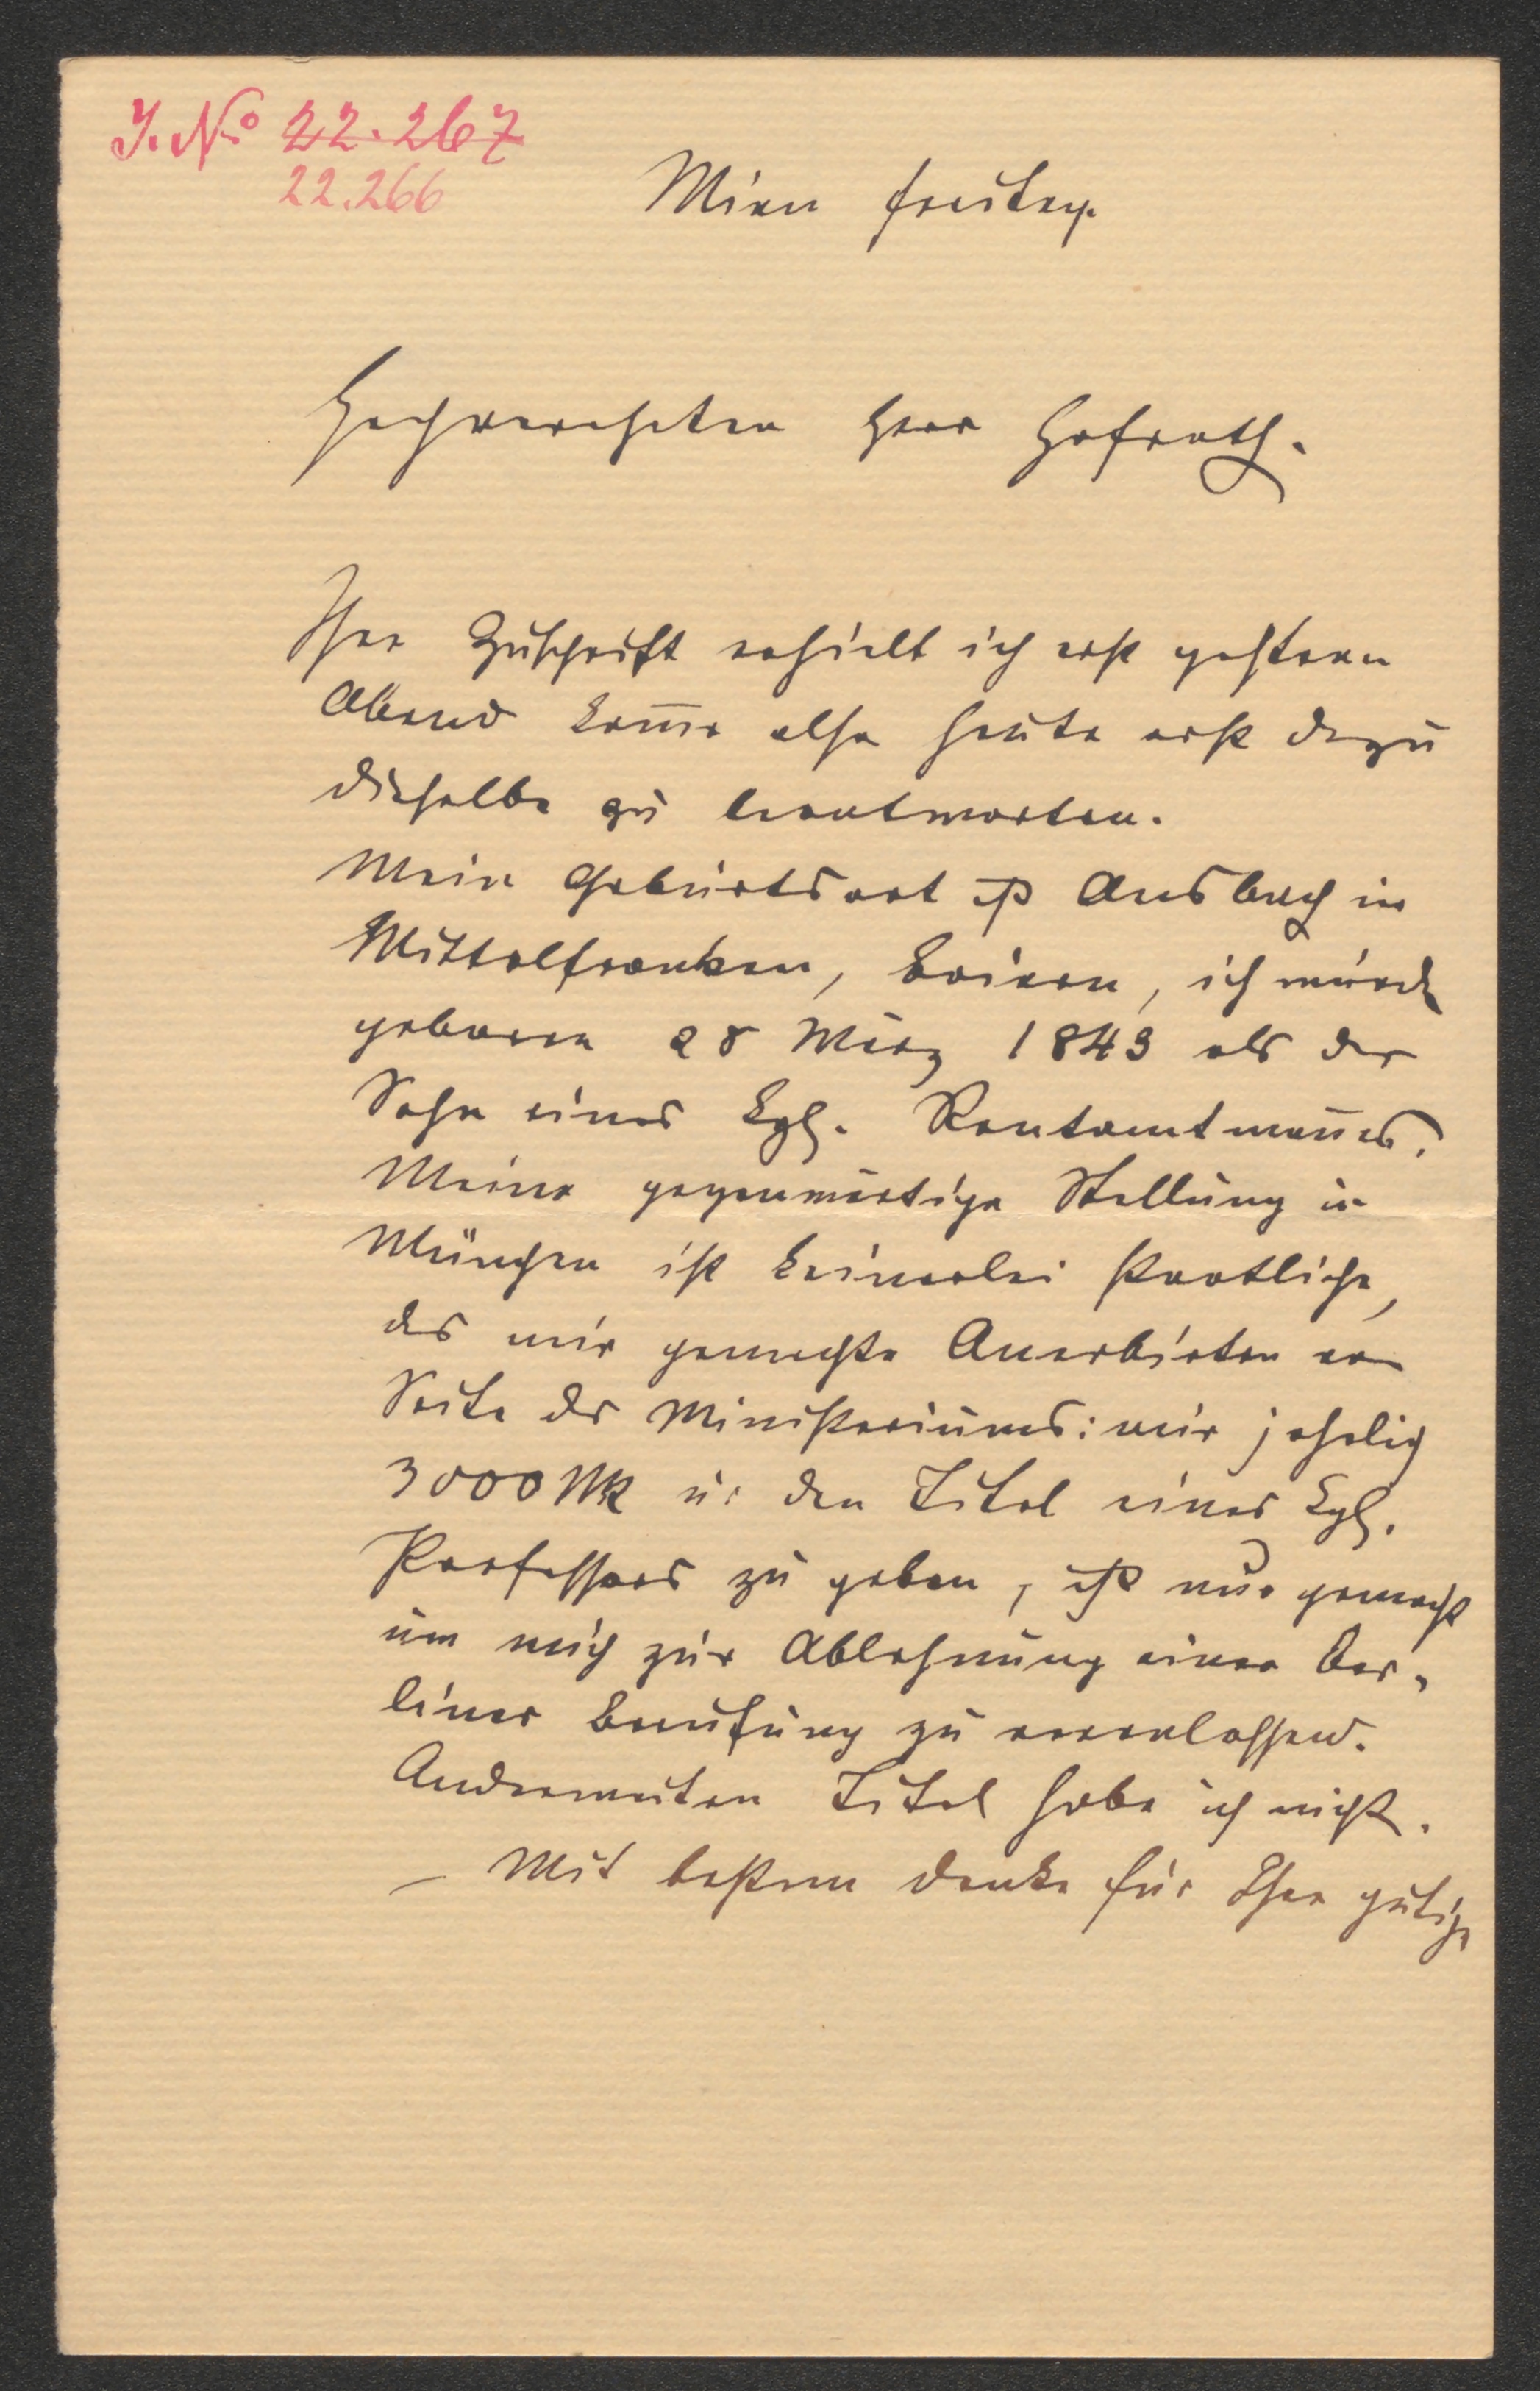 J. No 22.267
22.266
Wien Freitag.
Hochverehrter Herr Hofrath.
Ihre Zuschrift erhielt ich erst gestern
Abend kom̄e also heute erst dazu
dieselbe zu beantworten.
Mein Geburtsort ist Ansbach in
Mittelfranken, Baiern, ich wurde
geboren 28 März 1843 als der
Sohn eines kgl. Rentamtman̄es.
Meine gegenwärtige Stellung in
München ist keinerlei staatliche,
das mir gemachte Anerbieten von
Seite des Ministeriums: mir jährlich
3000 Mk u: den Titel eines kgl.
Professors zu geben, ist nur gemacht
um mich zur Ablehnung einer Ber-
liner Berufung zu veranlassen.
Anderweiten Titel habe ich nicht.
– Mit bestem Danke für Ihre gütige